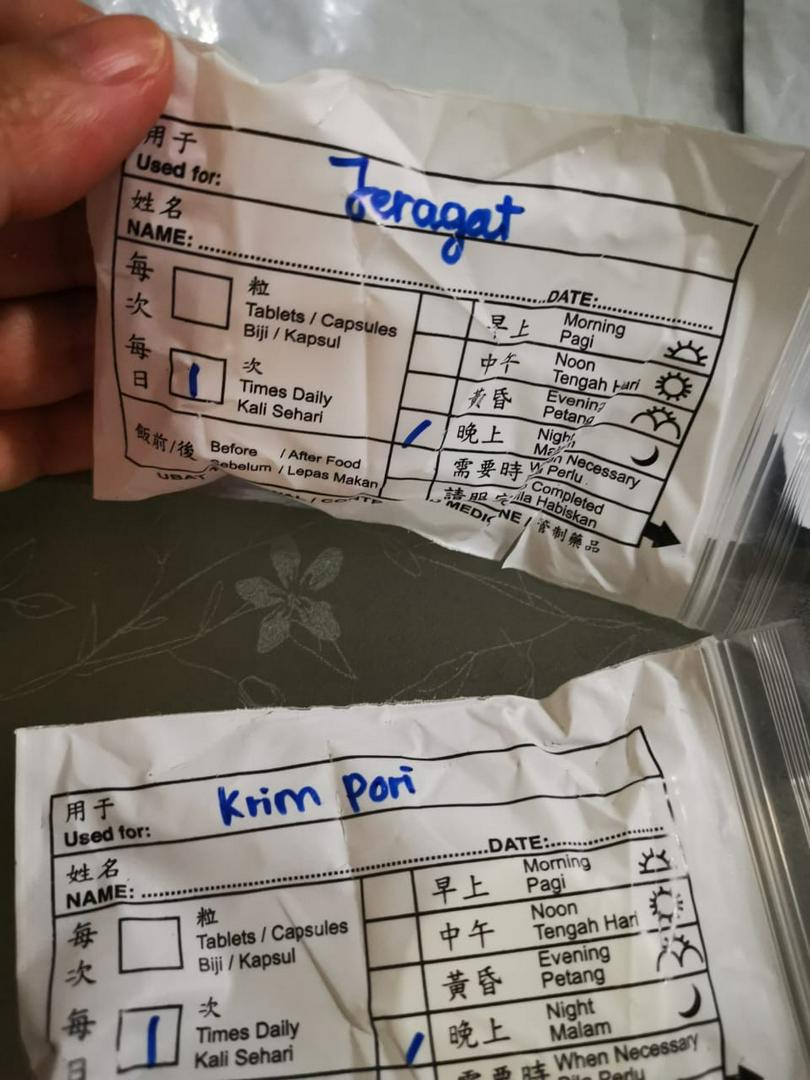 用于
Used for: Jeragat
姓名
NAME:
DATE:
每次
粒
Tablets / Capsules
Biji / Kapsul
每日
1
次
Times Daily
Kali Sehari
飯前/後
Before / After Food
Sebelum / Lepas Makan
早上
Morning
Pagi
中午
Noon
Tengah Hari
黃昏
Evening
Petang
/
晚上
Night
需要時
Necessary
Perlu
Completed
Habiskan
管制藥品
用于
Used for: Krim Pori
姓名
NAME:
DATE:
每次
粒
Tablets / Capsules
Biji / Kapsul
每日
1
次
Times Daily
Kali Sehari
早上
Morning
Pagi
中午
Noon
Tengah Hari
黃昏
Evening
Petang
/
晚上
Night
Malam
需要時
When Necessary
Bila Perlu